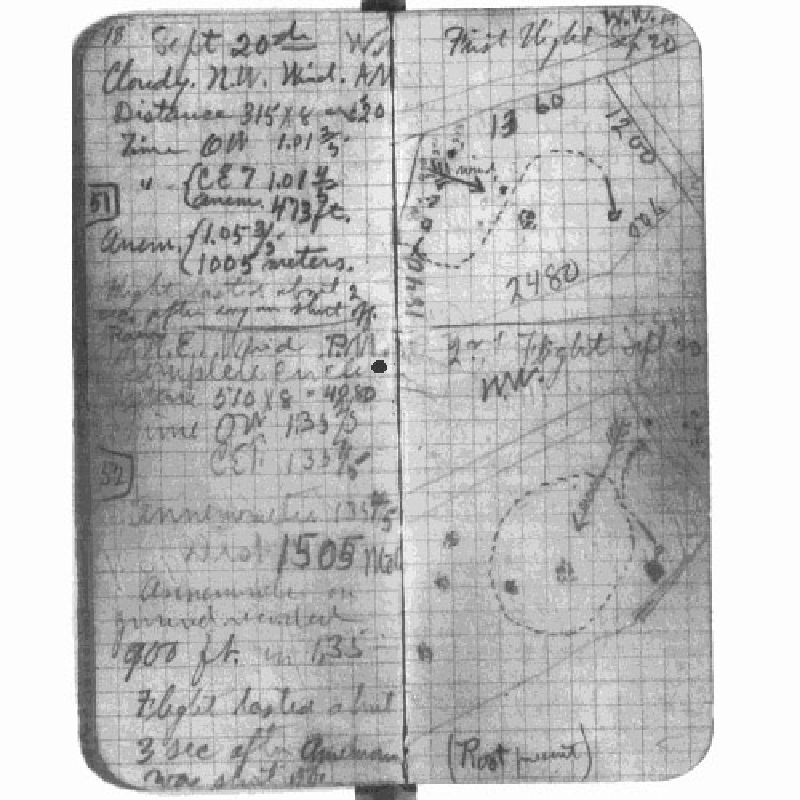 18
Sept 20th W.W.
Cloudy. N.W. Wind. AM
Distance 315 x 8 =
Time OW 1.01 3/5
" CET 1.01 4/5
anem. 473 ft.
51
Anem. 1.05 3/5
1005 meters.
Flight lasted about 2
sec after engine shut off.
N.E. Wind P.M.
Complete Circle
510 x 8 = 4080
Time OW 135 2/5
CET 135 2/5
52
Annemometer 135 4/5
Dist 1505 Met
Annemometer on
ground recorded
900 ft. in 135
Flight lasted about
3 sec after Anemom
was shut off
First Flight W.W.
Sep 20
1360
1200
wind
990
1540
2480
2nd Flight Sept 20
W.W.
(Root present)